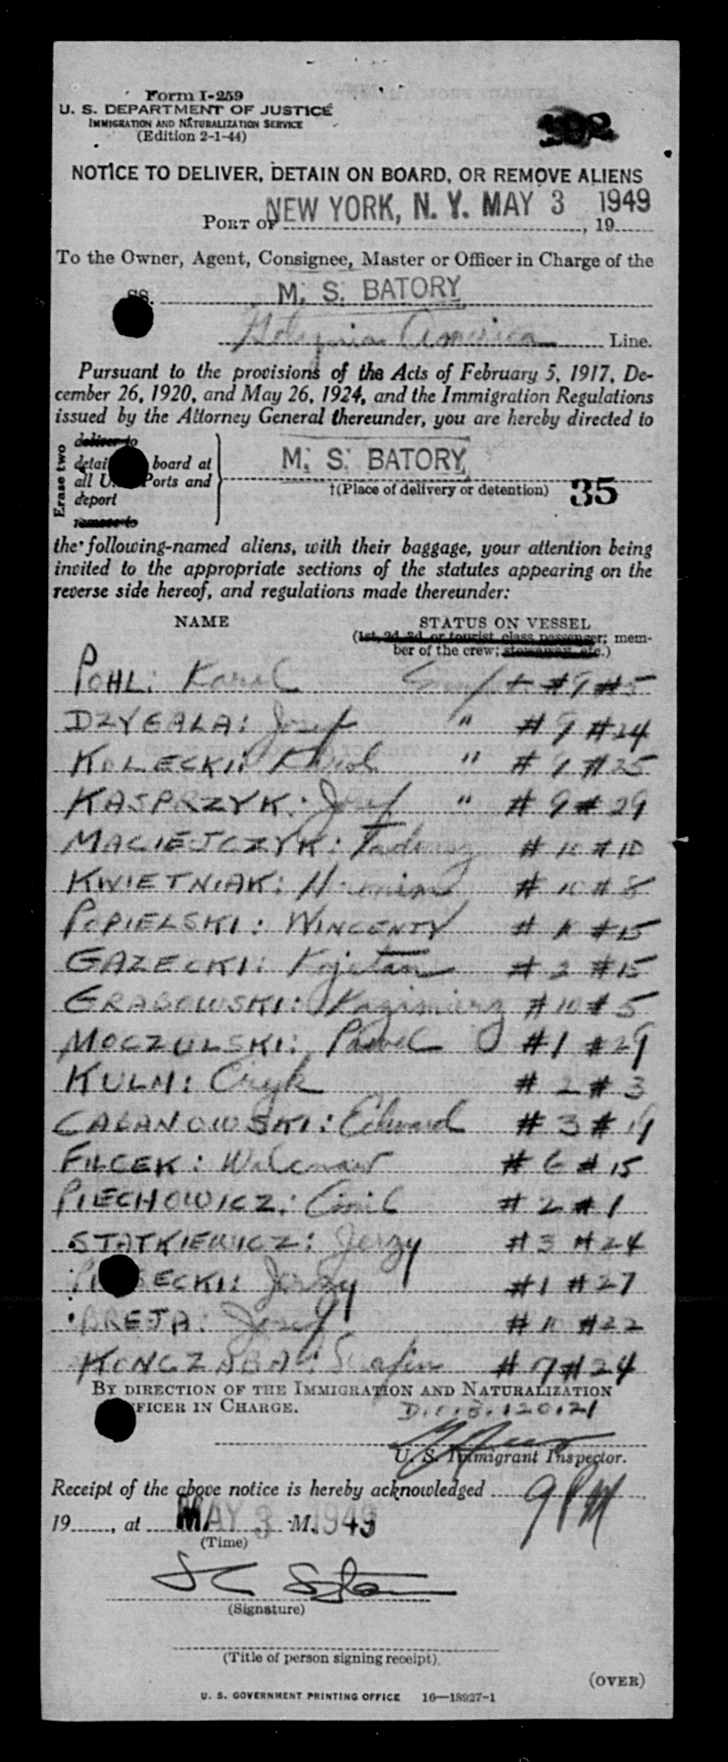 Form I-259
U. S. DEPARTMENT OF JUSTICE
IMMIGRATION AND NATURALIZATION SERVICE
(Edition 2-1-44)
NOTICE TO DELIVER, DETAIN ON BOARD, OR REMOVE ALIENS
PORT OF NEW YORK, N. Y. MAY 3 1949, 19
To the Owner, Agent, Consignee, Master or Officer in Charge of the
SS. M. S. BATORY
America Line.
Pursuant to the provisions of the Acts of February 5, 1917, De-
cember 26, 1920, and May 26, 1924, and the Immigration Regulations
issued by the Attorney General thereunder, you are hereby directed to
Erase two
deliver to
board at
all Ports and
deport
remove to
M. S. BATORY
†(Place of delivery or detention) 35
the following-named aliens, with their baggage, your attention being
invited to the appropriate sections of the statutes appearing on the
reverse side hereof, and regulations made thereunder:
NAME STATUS ON VESSEL
(1st, 2d, 3d, or tourist class passenger; mem-
ber of the crew; stowaway, etc.)
POHL: Karol #9 #5
DZYGALA: Josef " # 9 #24
KOLECKI: Karol " # 9 #25
KASPRZYK: Josef " # 9 # 29
MACIEJCZYK: Tadeusz # 10 # 10
KWIETNIAK: # 10 # 8
POPIELSKI: WINCENTY # #15
GAZECKI: Kajetan # 2 #15
GRABOWSKI: Kazimierz #10 # 5
MOCZULSKI: Pawel #1 #29
KULM: Eryk # 2 # 3
CABANOWSKI: Edward # 3 # 19
FILCEK: # 6 # 15
PIECHOWICZ: Emil # 2 # 1
STATKIEWICZ: Jerzy #3 #24
SECKI: Jerzy #1 #27
BREJA: Josef # 10 #22
KONCZABA: Serafin # 7 #24
BY DIRECTION OF THE IMMIGRATION AND NATURALIZATION
OFFICER IN CHARGE.
U. S. Immigrant Inspector.
Receipt of the above notice is hereby acknowledged 9 PM
19, at MAY 3 M. 1949
(Time)
(Signature)
(Title of person signing receipt).
(OVER)
U. S. GOVERNMENT PRINTING OFFICE 16—18927-1